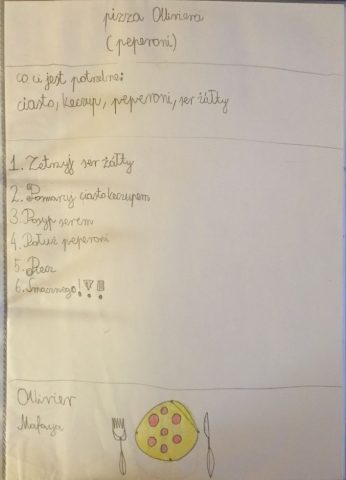 pizza Olliviera
(peperoni)
co ci jest potrzebne:
ciasto, keczup, peperoni, ser żółty
1. Zetrzyj ser żółty
2. Posmaruj ciasto keczupem
3. Posyp serem
4. Połuż peperoni
5. Piecz
6. Smacznego!!!
Ollivier